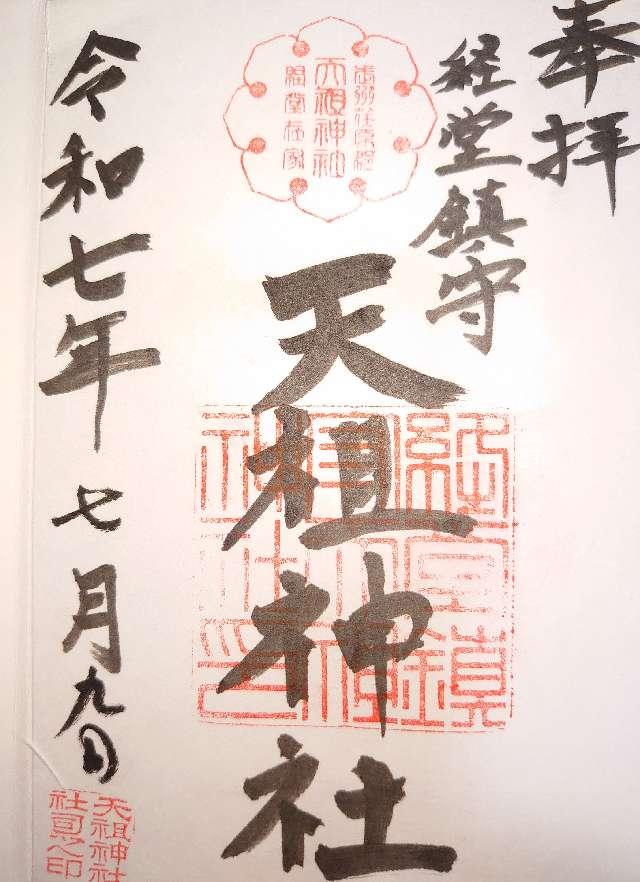 奉拝
経堂鎮守
天祖神社
天祖神社
令和七年七月九日
天祖神社
社司之印